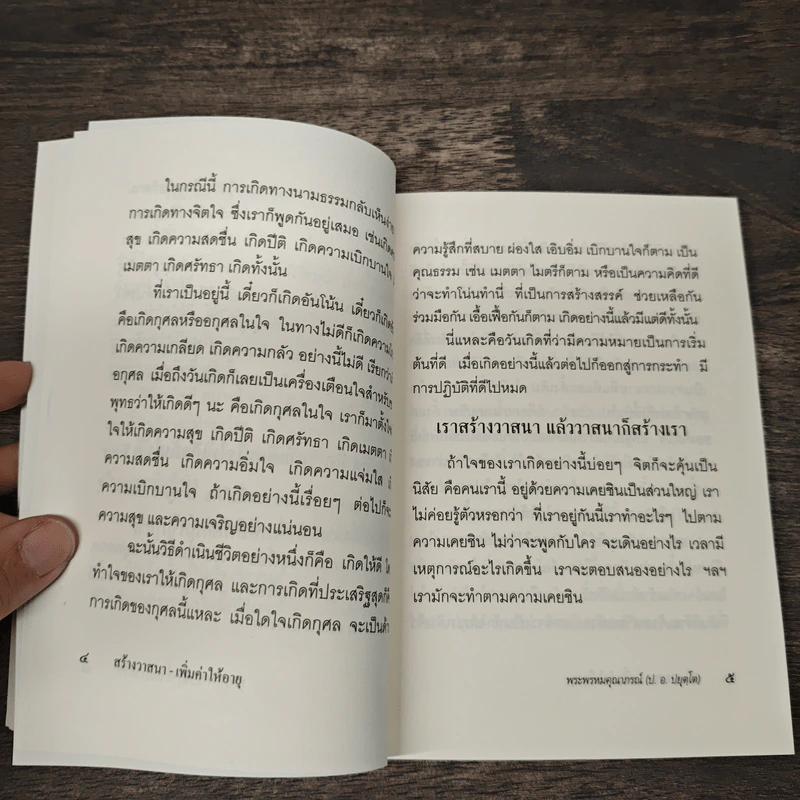 ในกรณีนี้ การเกิดทางนามธรรมกลับเห็นง่าย
การเกิดทางจิตใจ ซึ่งเราก็พูดกันอยู่เสมอ เช่นเกิด
สุข เกิดความสดชื่น เกิดปีติ เกิดความเบิกบานใจ
เมตตา เกิดศรัทธา เกิดทั้งนั้น
ที่เราเป็นอยู่นี้ เดี๋ยวก็เกิดอันโน้น เดี๋ยวก็เกิด
คือเกิดกุศลหรืออกุศลในใจ ในทางไม่ดีก็เกิดความ
เกิดความเกลียด เกิดความกลัว อย่างนี้ไม่ดี เรียกว่า
อกุศล เมื่อถึงวันเกิดก็เลยเป็นเครื่องเตือนใจสำหรับ
พุทธว่าให้เกิดดีๆ นะ คือเกิดกุศลในใจ เราก็มาตั้งใจ
ใจให้เกิดความสุข เกิดปีติ เกิดศรัทธา เกิดเมตตา
ความสดชื่น เกิดความอิ่มใจ เกิดความแจ่มใส
ความเบิกบานใจ ถ้าเกิดอย่างนี้เรื่อยๆ ต่อไปก็จะ
ความสุข และความเจริญอย่างแน่นอน
ฉะนั้นวิธีดำเนินชีวิตอย่างหนึ่งก็คือ เกิดให้ดี
ทำใจของเราให้เกิดกุศล และการเกิดที่ประเสริฐสุดก็คือ
การเกิดของกุศลนี้แหละ เมื่อใดใจเกิดกุศล จะเป็นด้าน
๔ สร้างวาสนา - เพิ่มค่าให้อายุ
ความรู้สึกที่สบาย ผ่องใส เอิบอิ่ม เบิกบานใจก็ตาม เป็น
คุณธรรม เช่น เมตตา ไมตรีก็ตาม หรือเป็นความคิดที่ดี
ว่าจะทำโน่นทำนี่ ที่เป็นการสร้างสรรค์ ช่วยเหลือกัน
ร่วมมือกัน เอื้อเฟื้อกันก็ตาม เกิดอย่างนี้แล้วมีแต่ดีทั้งนั้น
นี่แหละคือวันเกิดที่ว่ามีความหมายเป็นการเริ่ม
ต้นที่ดี เมื่อเกิดอย่างนี้แล้วต่อไปก็ออกสู่การกระทำ มี
การปฏิบัติที่ดีไปหมด
เราสร้างวาสนา แล้ววาสนาก็สร้างเรา
ถ้าใจของเราเกิดอย่างนี้บ่อยๆ จิตก็จะคุ้นเป็น
นิสัย คือคนเรานี้ อยู่ด้วยความเคยชินเป็นส่วนใหญ่ เรา
ไม่ค่อยรู้ตัวหรอกว่า ที่เราอยู่กันนี้เราทำอะไรๆ ไปตาม
ความเคยชิน ไม่ว่าจะพูดกับใคร จะเดินอย่างไร เวลามี
เหตุการณ์อะไรเกิดขึ้น เราจะตอบสนองอย่างไร ฯลฯ
เรามักจะทำตามความเคยชิน
พระพรหมคุณาภรณ์ (ป. อ. ปยุตฺโต) ๕